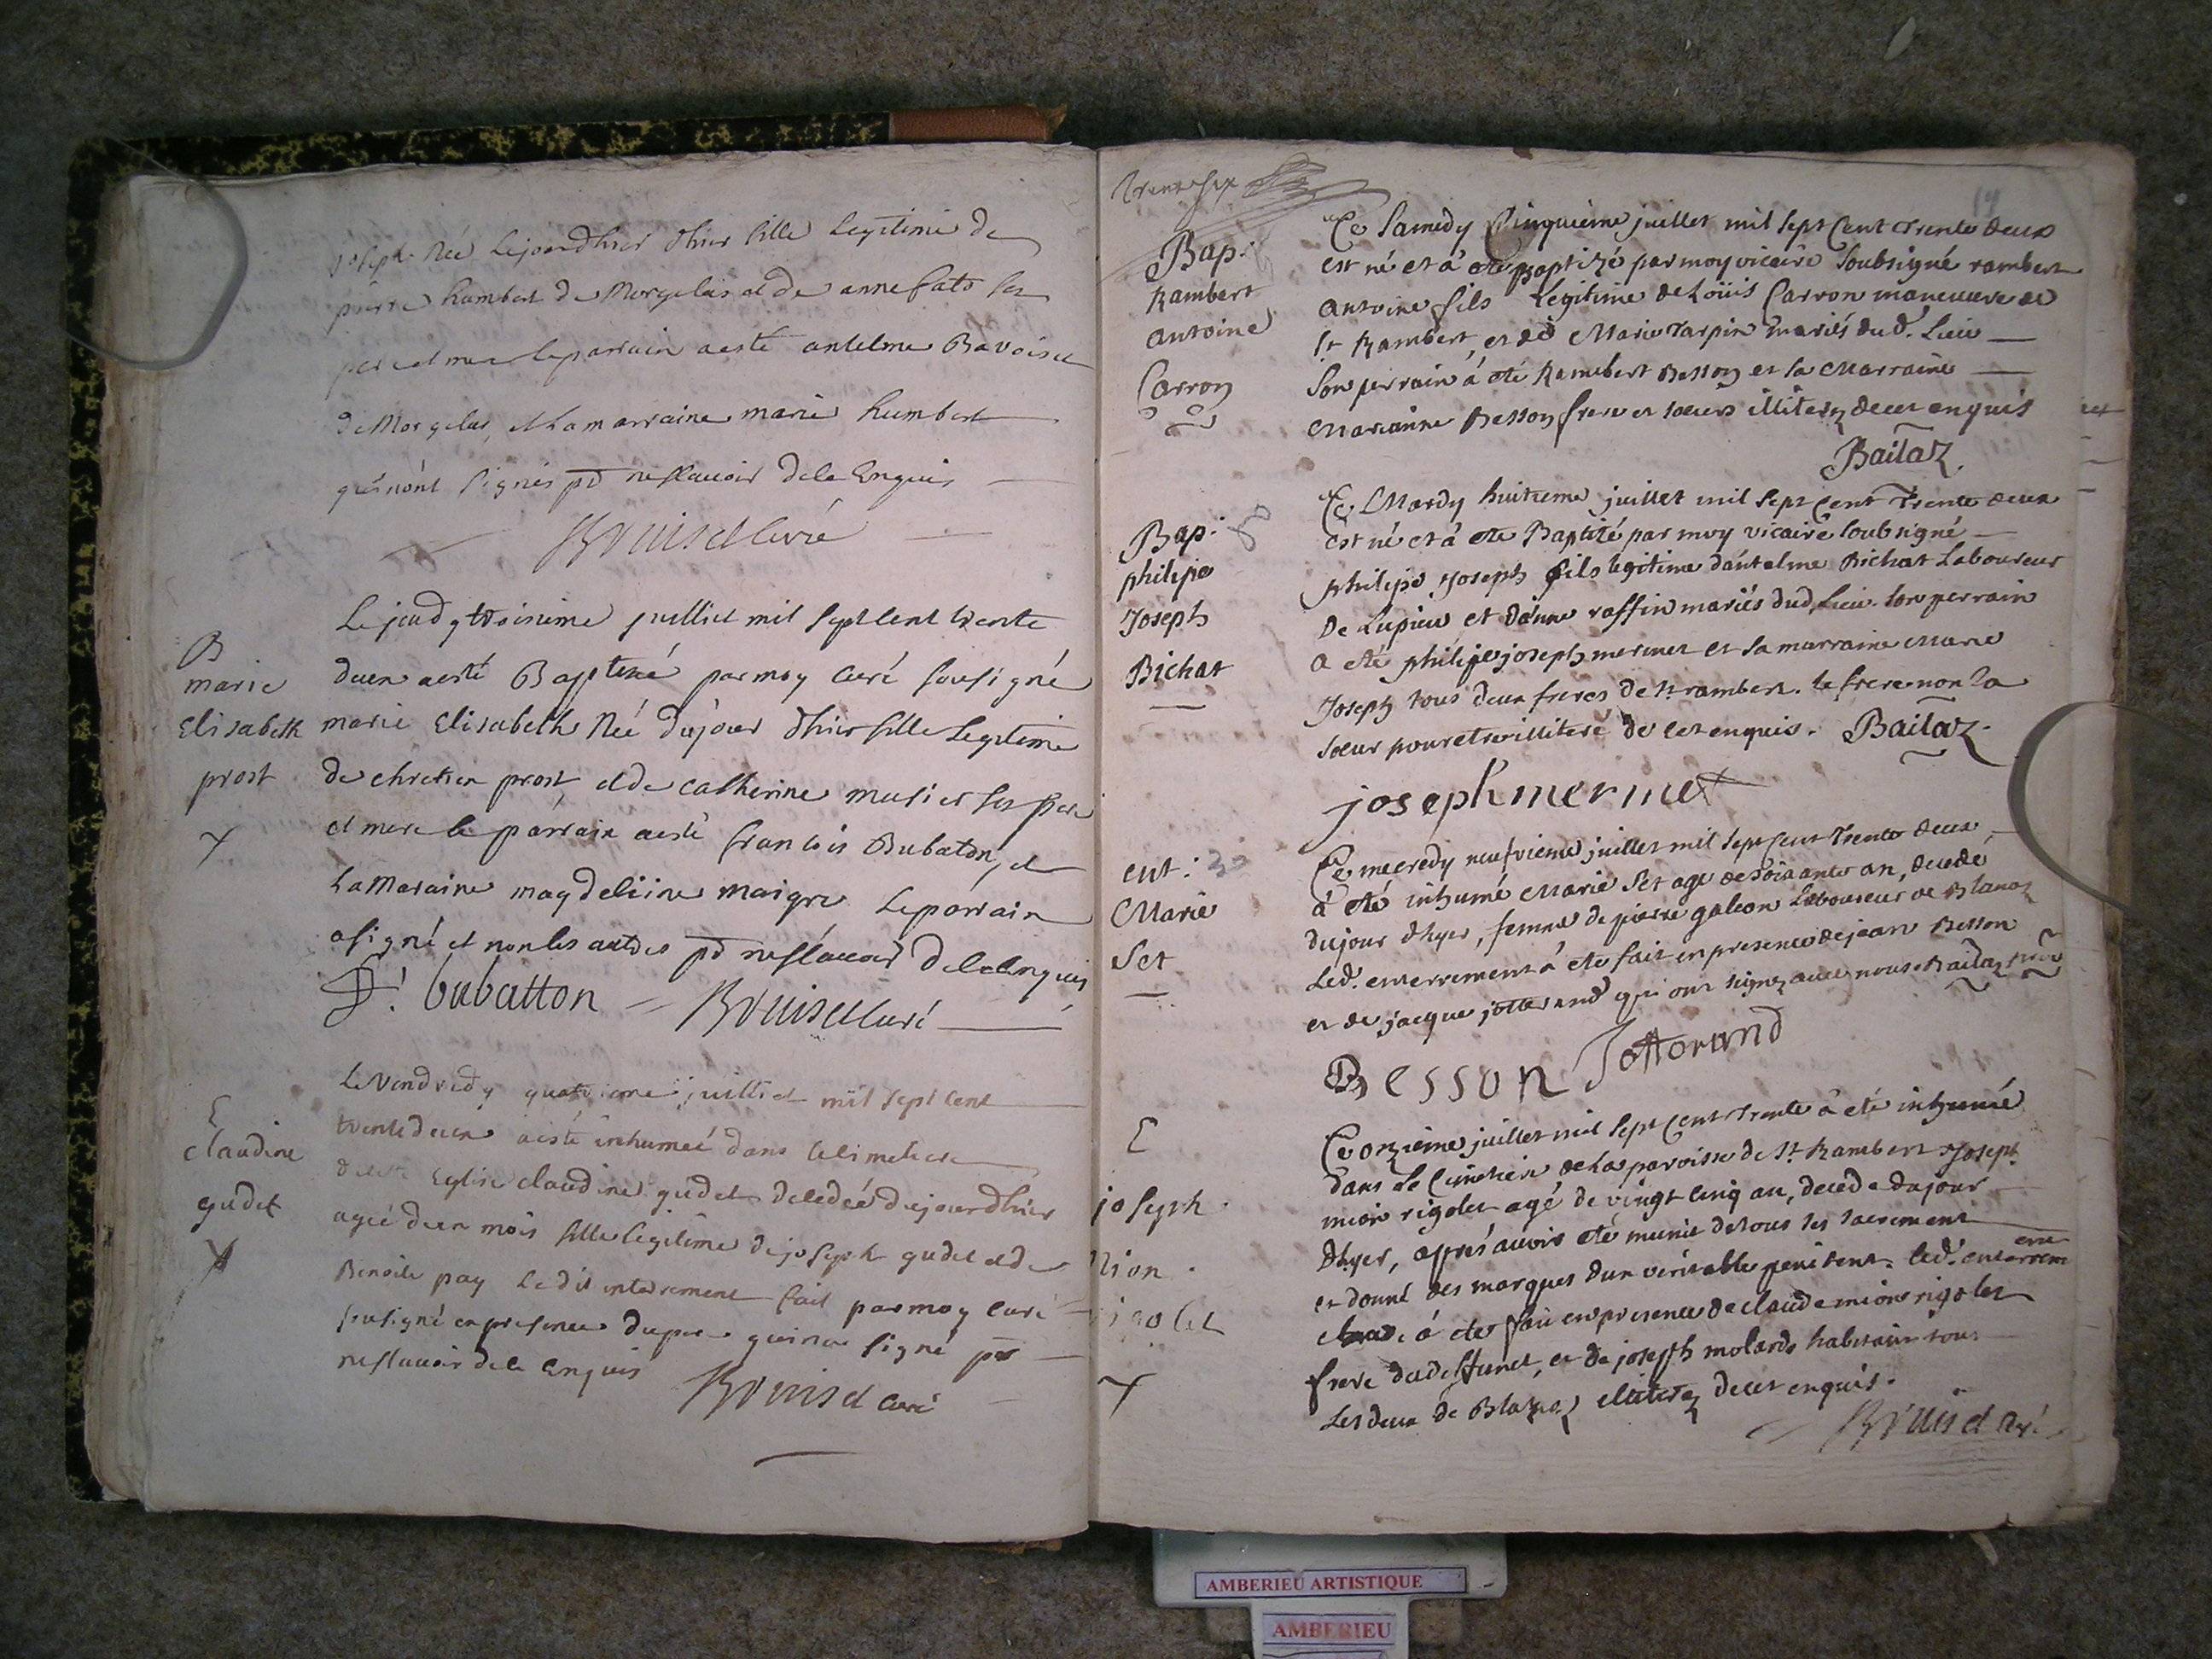 joseph Née Lejourdhier dhier fille Legitime de
pierre humbert de Morgelas et de anne fats ses
pere et mere le parrain aesté antelme Bavoiset
de Morgelas, et la marraine marie humbert
qui nónt signés pd nesÃ§avoir dele Enquis
Brouiset Curé
B
marie
Elisabeth
prost
Le jeudy troisieme julliet mil sept cent trente
deux aesté Baptisé par moy curé sousigné
marie Elisabeth Née dujour dhier fille Legitime
de chretien prost et de catherine musier ses pere
et mere le parrain aesté francois Bubaton, et
La Maraine magdeleine maigre Le parrain
asigné et non les autres pd nesçavoir dele Enquis
f. bubatton Brouiset curé
E
claudine
gudet
Le Vendredy quatrieme juilliet mil sept cent
trente deux aesté inhumeé dans le cimetiere
Eglise claudine gudet decedeé dujourdhier
ageé dun mois fille legitime de joseph gudet et de
Benoite pay Le dit interement fait par moy curé
sousigné en presence du pere qui na signé pr
nesçavoir dele Enquis
Brouiset curé
trente six
19
Bap:
Rambert
antoine
Carron
Ce Samedy Cinquieme juillet mil sept Cent trente deux
est né et á eté Baptizé par moy vicaire Soubsigné rambert
antoine fils Legitime de Loüis Carron maneuvre de
St Rambert, et de Marie Tarpin mariés dud. Lieu
Son perrain á eté Rambert Besson et Sa Marraine
Marianne Besson frere et soeurs illiterez decet enquis
Bailaz.
Bap:
philipe
Joseph
Bichat
Ce Mardy huitieme juillet mil sept Cent Trente deux
est né et á eté Baptizé par moy vicaire soubsigné
philipe Joseph fils legitime dántelme Bichat Laboureur
De Lupieu et dánne raffin mariés dud. Lieu. son perrain
a eté philipe joseph mermet et sa marraine Marie
Joseph tous deux freres de St rambert. le frere non la
soeur pour etre illiteré de cet enquis. Bailaz.
joseph mermet
ent: 30
Marie
Set
Ce mecredy neufvieme juillet mil sept Cent Trente deux
á eté inhumé Marie Set age de soixante an, decedé
dujour dhyer, femme de pierre galeon Laboureur de Blanaz
Led. enterrement á eté fait en presence de jean Besson
et de jacque jotterand qui ont signez avec nous. Bailaz
Besson Jottorand
E
joseph
Mion
rigolet
Ce onzieme juillet mil sept Cent Trente á eté inhumé
dans Le Cimetiere de La paroisse de St Rambert Joseph
mion rigolet agé de vingt Cinq an, decede dujour
Dhyer, aprés avoir eté munie de tous ses sacrement
et donné des marques dun veritable penitent. led. enterrem
á eté fait en presence de claude mion rigolet
frere du deffunct, et de joseph molards habitain tous
Les deux de Blanaz illiterez decet enquis.
Brouiset curé
AMBERIEU ARTISTIQUE
AMBERIEU